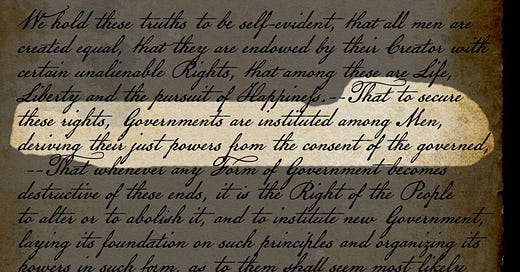 We hold these truths to be self-evident, that all men are
created equal, that they are endowed by their Creator with
certain unalienable Rights, that among these are Life,
Liberty and the pursuit of Happineſs.--That to secure
these rights, Governments are instituted among Men,
deriving their just powers from the consent of the governed,
--That whenever any Form of Government becomes
destructive of these ends, it is the Right of the People
to alter or to abolish it, and to institute new Government,
laying its foundation on such principles and organizing its
powers in such form, as to them shall seem most likely